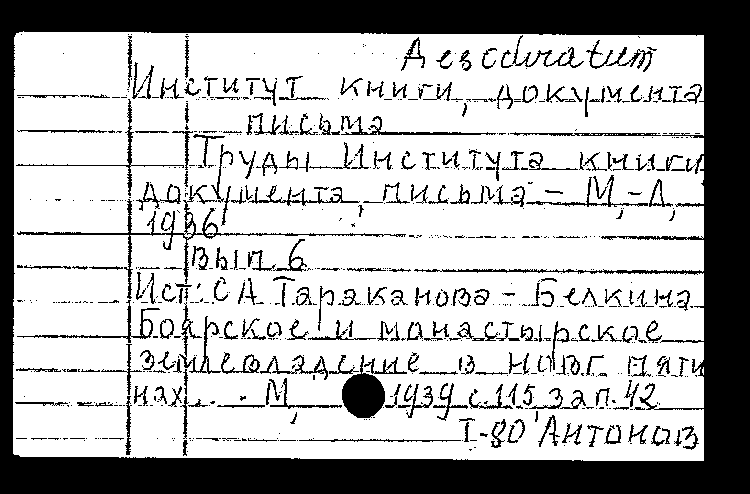 Desideratum
Институт книги, документа
письма
Труды Института книги
документа, письма - М,-Л,
1936
вып. 6
Ист: С А Тараканова - Белкина
Боярское и монастырское
землевладение в новг пяти
нах... М, 1939 с. 115, зап. 42
I-80 Антонов